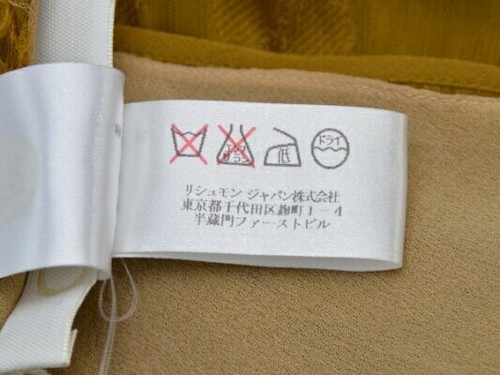 エンソ サラシ 低 ドライ
リシュモン ジャパン株式会社
東京都千代田区麹町1－4
半蔵門ファーストビル